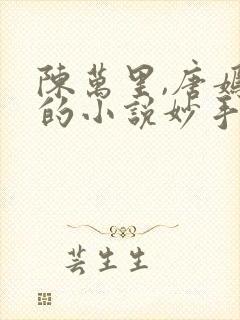 陳萬里,唐嫣
的小說妙手
芸生生